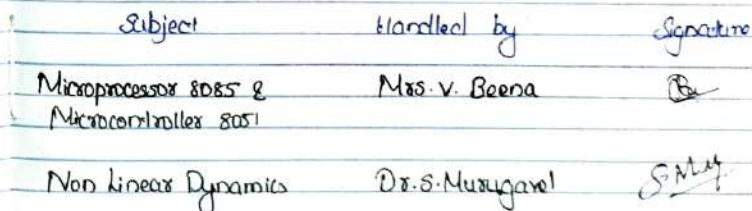 Subject Handled by Signature
Microprocessor 8085 & Mrs. V. Beena
Microcontroller 8051
Non Linear Dynamics Dr. S. Murugavel